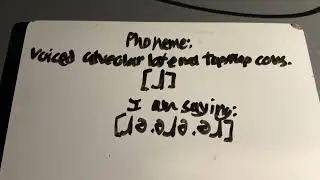 Phoneme:
Voiced alveolar lateral tap/flap cons.
[ɺ]
I am saying:
[ɺə.əɺə.əɺ]